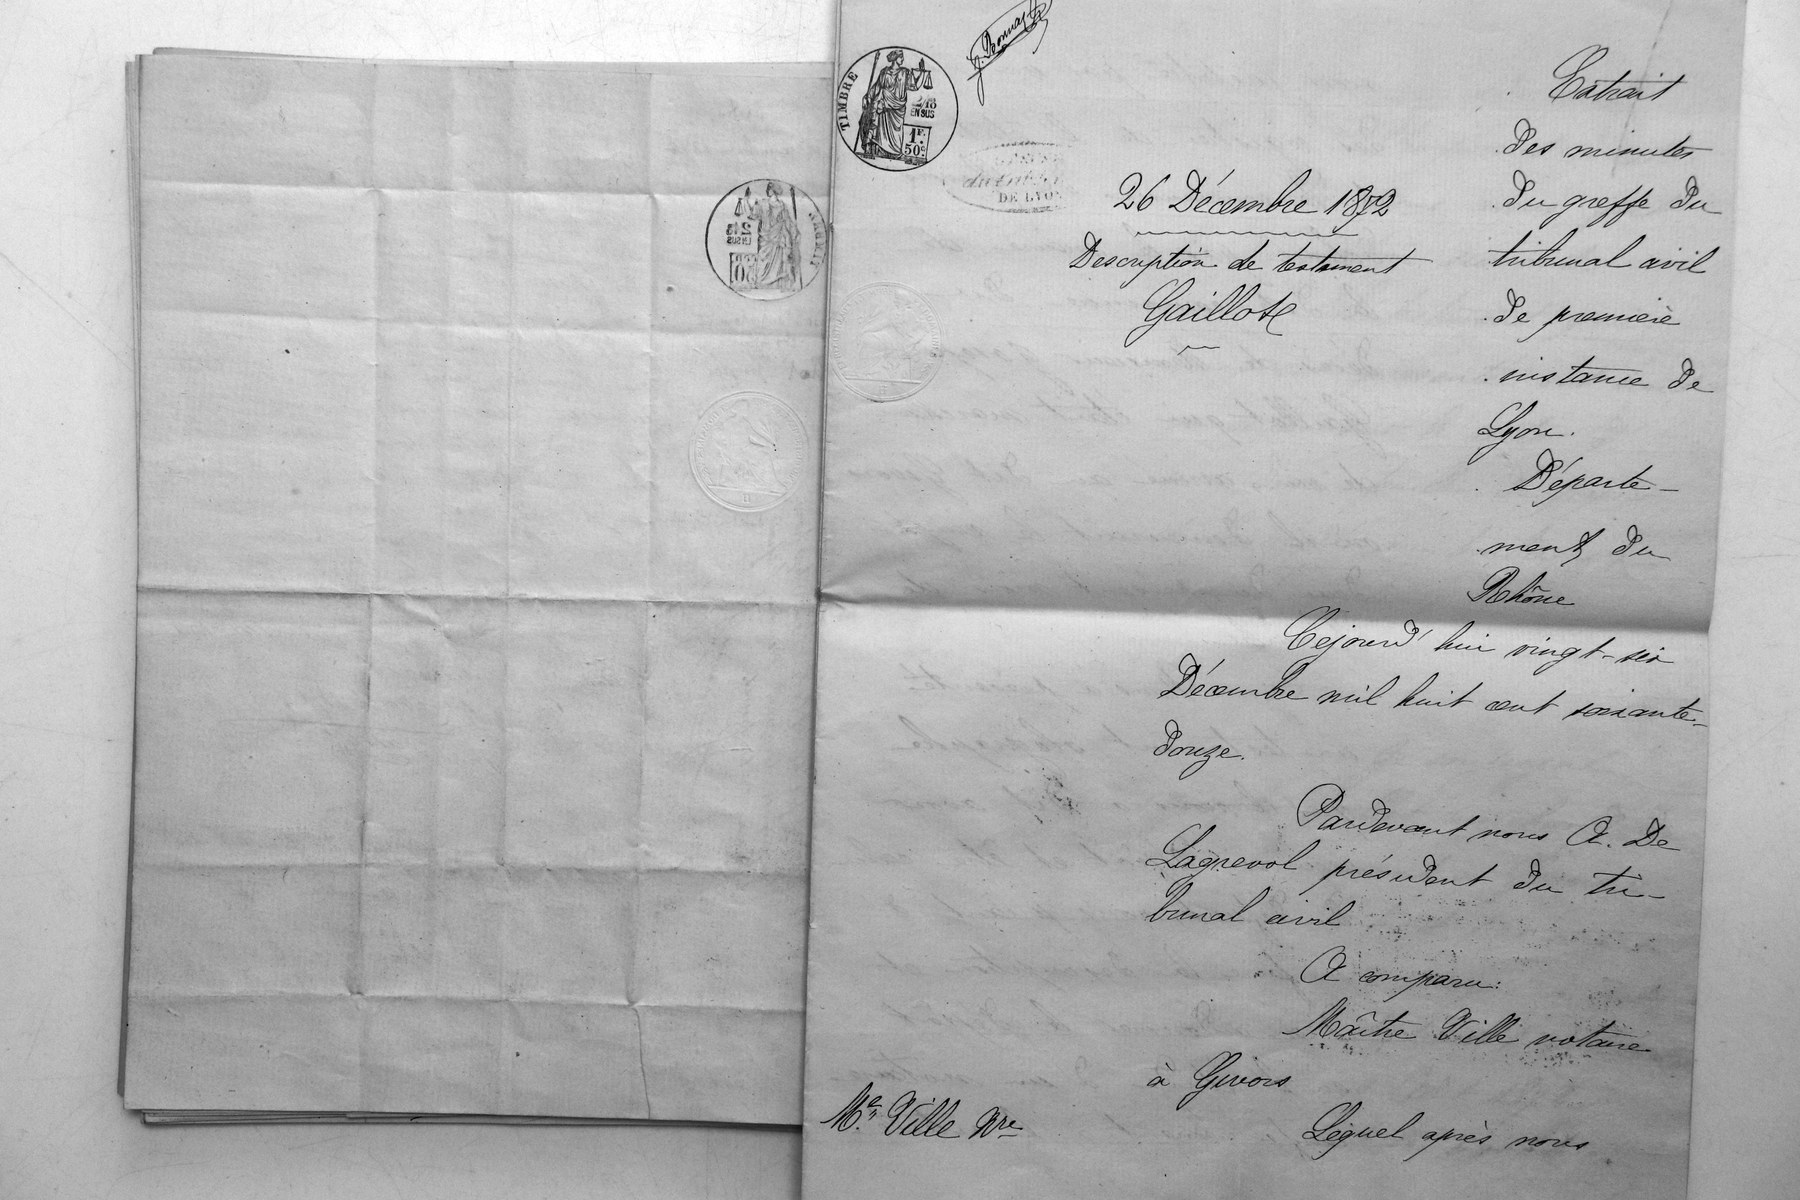 TIMBRE
2/10
EN SUS
1F.
50c
DE LYON
26 Décembre 1872
Description de testament
Gaillot
Extrait
des minutes
du greffe du
tribunal civil
de première
instance de
Lyon.
Départe-
ment du
Rhône
Cejourd'hui vingt-six
Décembre mil huit cent soixante-
douze.
Pardevant nous A. De
Lagrevol président du tri-
bunal civil
A comparu:
Maître Ville notaire
à Givors
Me. Ville Nre
Lequel après nous